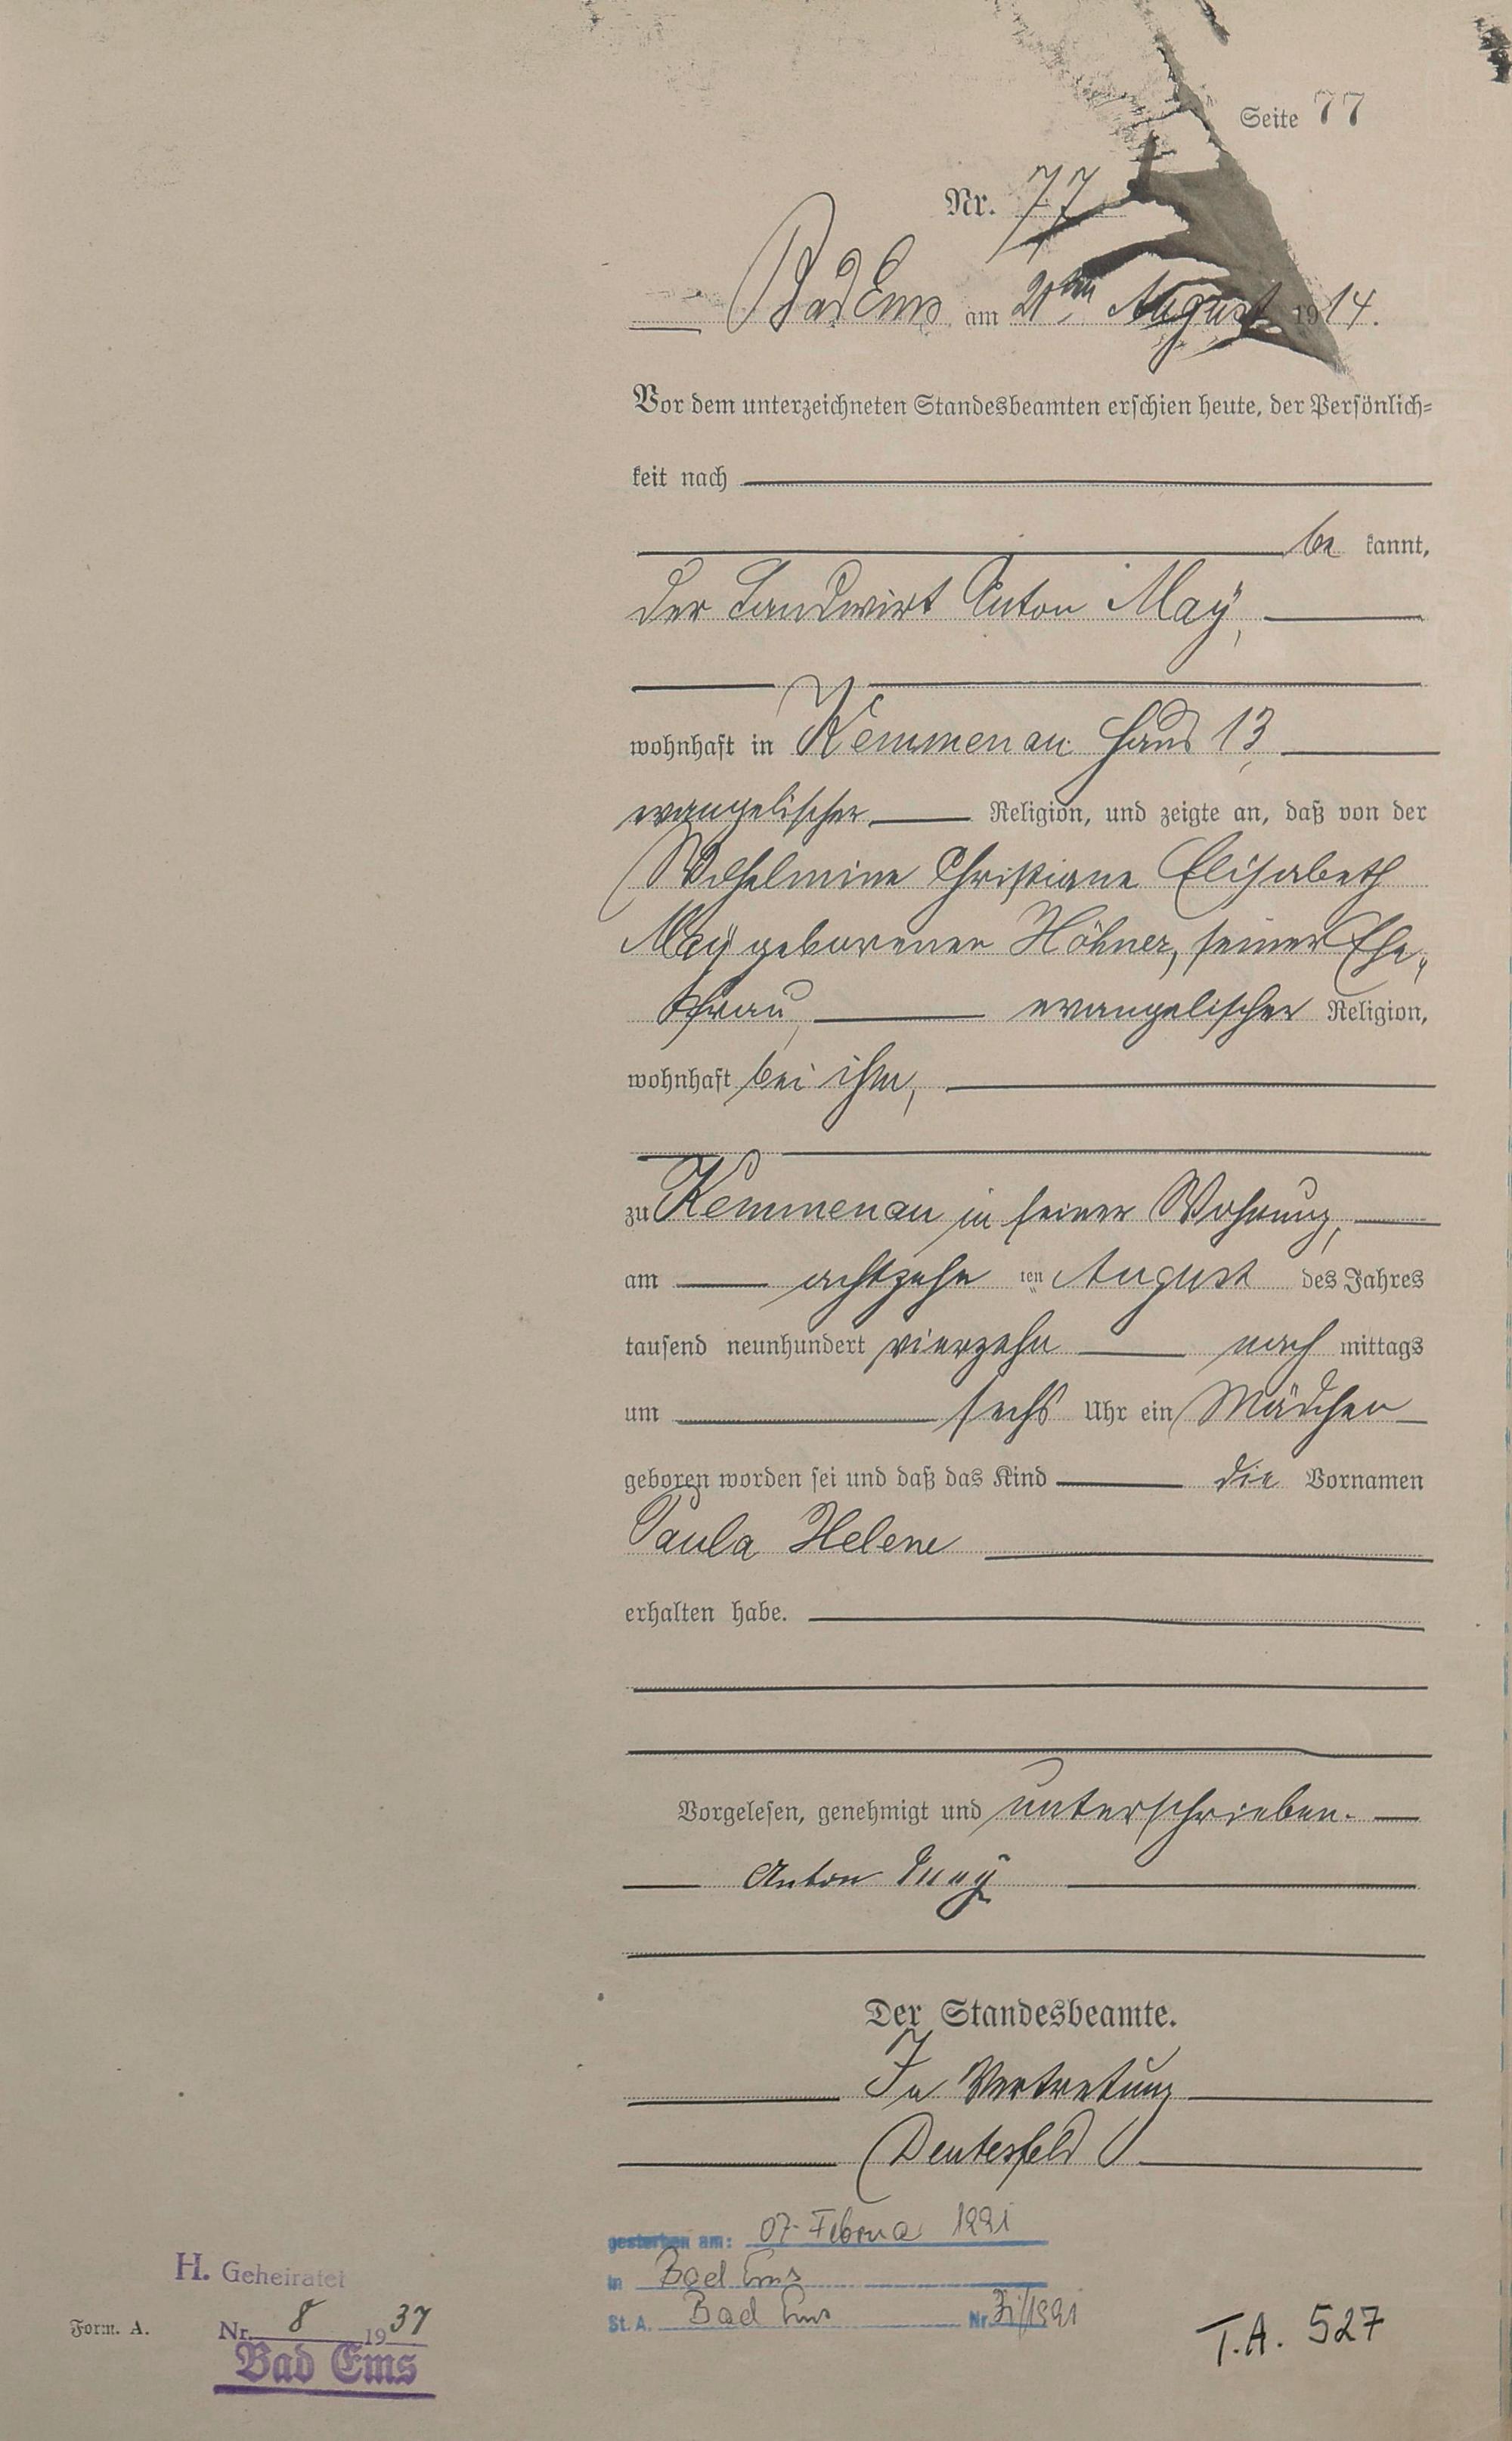 Seite 77
Nr. 77
Bad Ems, am 21ten August 1914.
Vor dem unterzeichneten Standesbeamten erschien heute, der Persönlich=
keit nach
be kannt,
der Landwirt Anton Maÿ,
wohnhaft in Kemmenau Haus 13,
evangelischer Religion, und zeigte an, daß von der
Wilhelmine Christiane Elisabeth
Maÿ geborenen Höhner, seiner Ehe„
frau, evangelischer Religion,
wohnhaft bei ihm,
zu Kemmenau in seiner Wohnung,
am achtzehn ten August des Jahres
tausend neunhundert vierzehn nach mittags
um sechs Uhr ein Mädchen
geboren worden sei und daß das Kind die Vornamen
Paula Helene
erhalten habe.
Vorgelesen, genehmigt und unterschrieben.
Anton Maÿ
Der Standesbeamte.
In Vertretung
gestorben am: 07. Februa 1991
in Bad Ems
St. A. Bad Ems Nr. /1991
H. Geheiratet
Form. A.
Nr. 8 1937
Bad Ems
T.A. 527